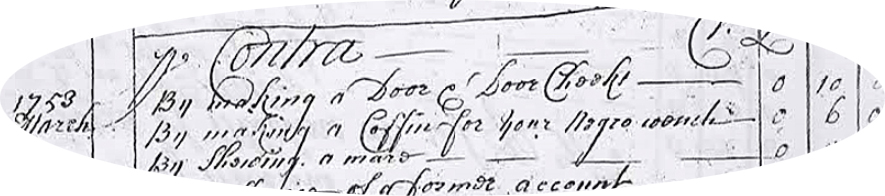 Pr Contra Cr. £
1753 By making a Door & Door Cheeks 0 10 0
March By making a Coffin for your Negro wench 0 6 0
By Shewing a mare 0
of a former account